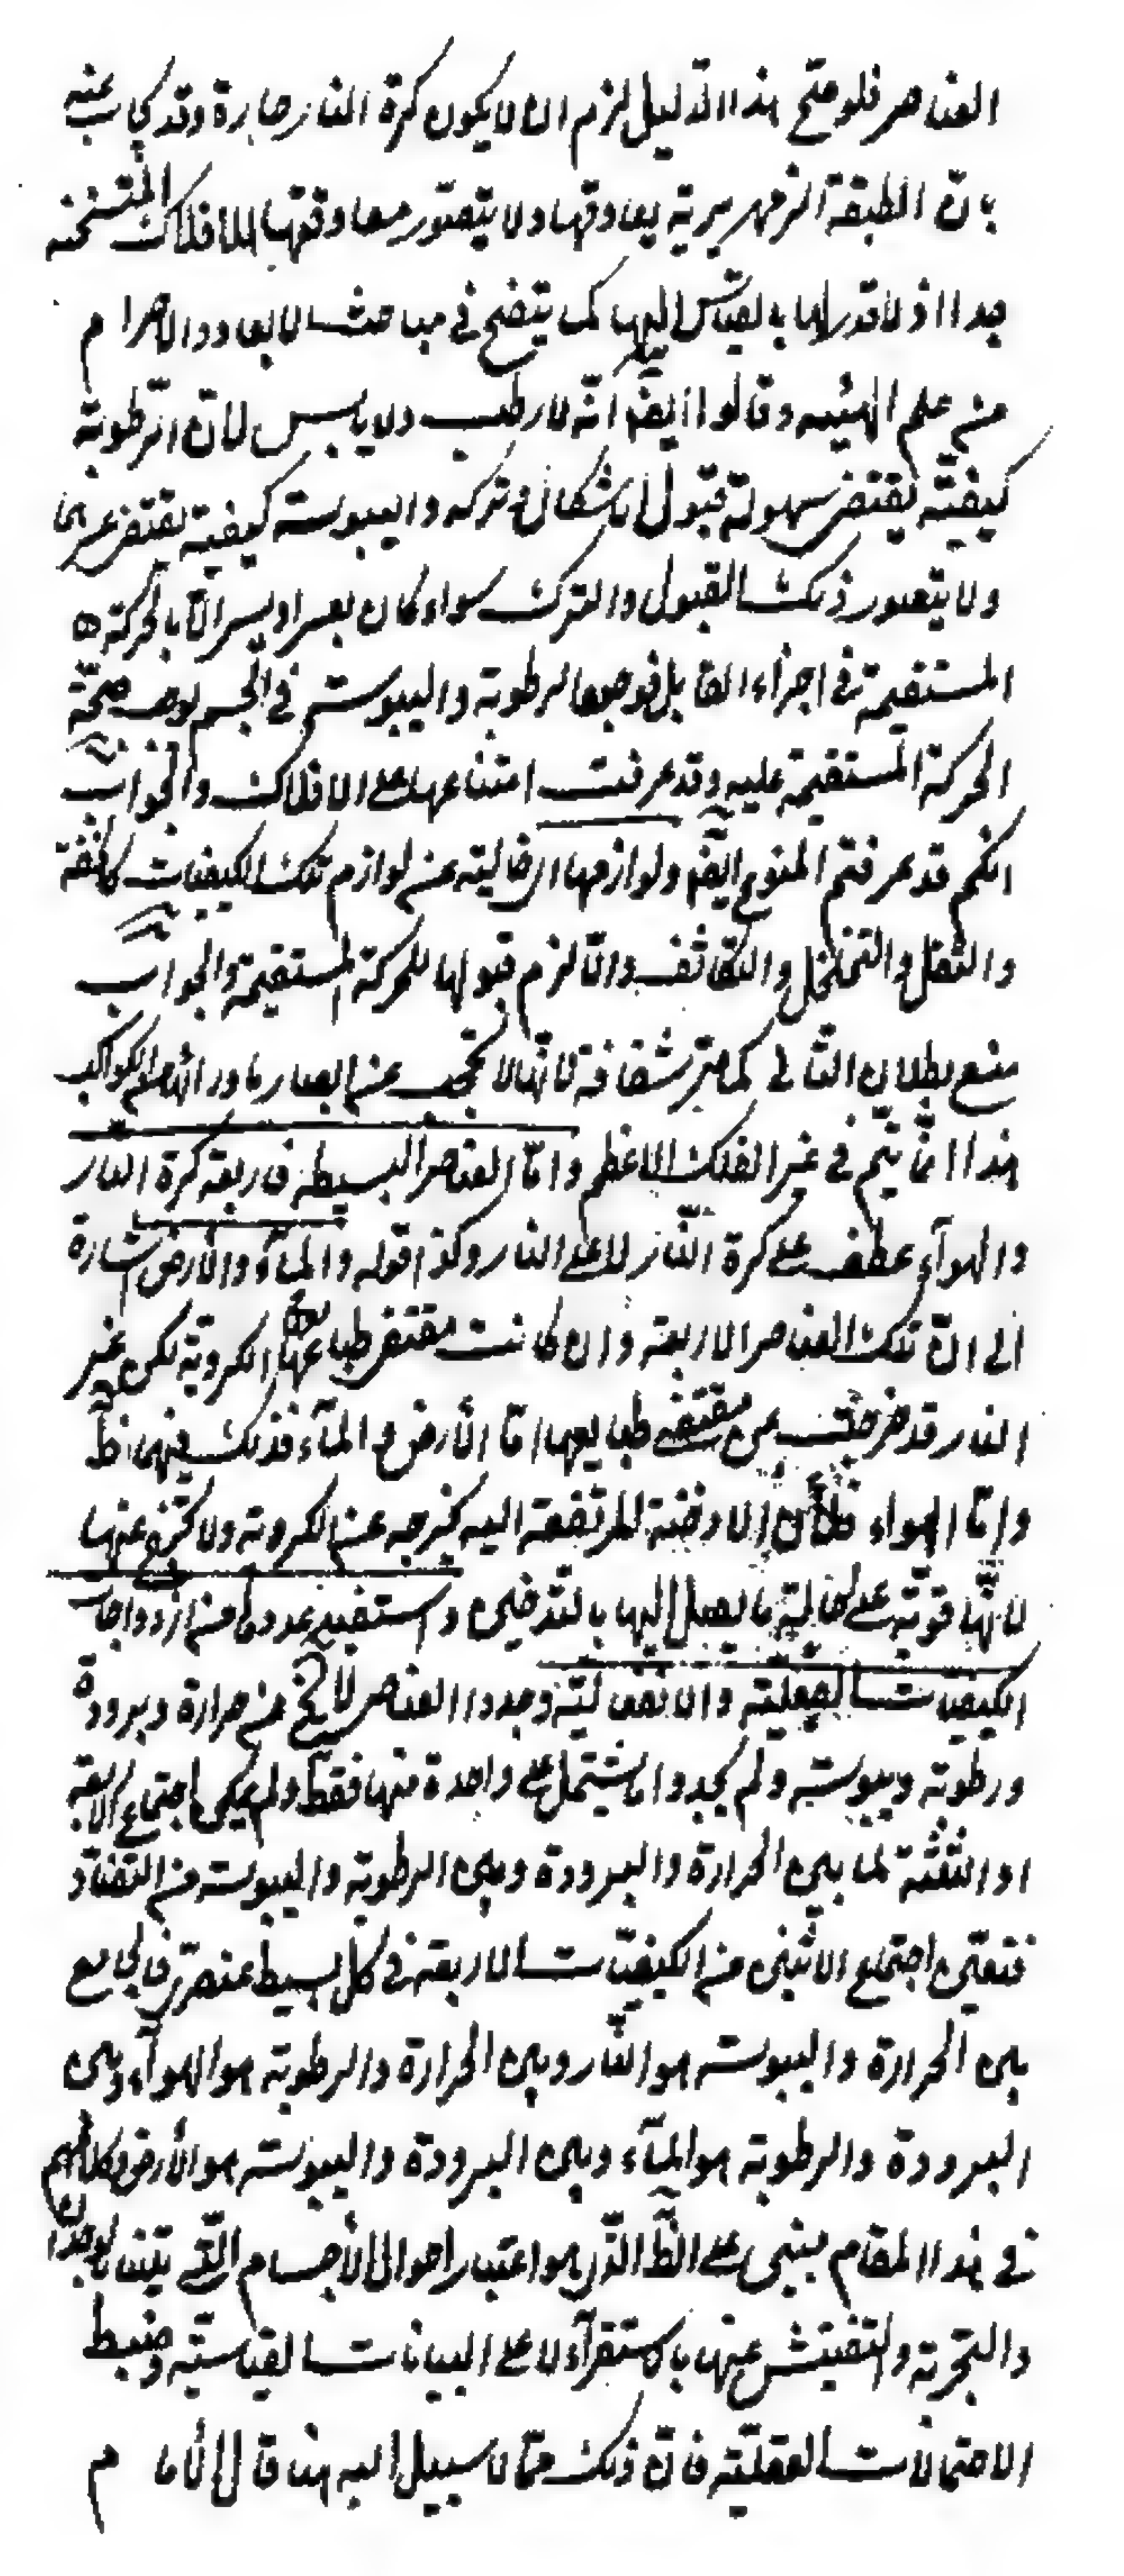 العناصر فلو صح هذا الدليل لزم ان لا يكون كرة النار حارة وقد يجاب عنه
بان الطبقة الزمهريرية يعاوقها ولا يتصور معاوقتها للافلاك المتسخنة
جدا اذ لا قدر لها بالقياس اليها كما يتضح في مباحث الابعاد والاجرام
من علم الهيئة وقالوا ايضا انه لا رطب ولا يابس لان الرطوبة
كيفية يقتضي سهولة قبول الاشكال وتركه واليبوسة كيفية يقتضي عسرهما
ولا يتصور ذلك القبول والترك سواء كان بعسر او يسر الا بالحركة
المستقيمة في اجزاء القابل فوجود الرطوبة واليبوسة في الجسم يوجب صحة
الحركة المستقيمة عليه وقد عرفت امتناعها على الافلاك والجواب
انكم قد عرفتم المنوع ايضا ولوازمها اي خالية عن لوازم تلك الكيفيات كالخفة
والثقل والتخلخل والتكاثف والا لزم قبولها للحركة المستقيمة والجواب
منع بطلان التالي كما مر شفافة لانها لا تحجب عن ابصار ما وراءها من الكواكب
هذا انما يتم في غير الفلك الاعظم واما العناصر البسيطة فاربعة كرة النار
والهوآء عطف على كرة النار لا على النار وكذا قوله والمآء والارض اشارة
الى ان تلك العناصر الاربعة وان كانت مقتضى طبايعها الكروية لكن غير
النار قد خرجت من مقتضى طبايعها اما الارض والمآء فذلك فيهما ظ
واما الهواء فلان الادخنة المرتفعة اليه يخرجه عن الكروية ولا تخرج عنها
لانها قوية على احالة ما يصل اليها بالتدخين واستفيد عددها من ازدواجات
الكيفيات الفعلية والانفعالية وجدوا العناصر لا يخ من حرارة وبرودة
ورطوبة ويبوسة ولم يجدوا ما يشتمل على واحدة منها فقط ولم يمكن اجتماع الاربعة
او الثلثة لما بين الحرارة والبرودة وبين الرطوبة واليبوسة من التضاد
فتعين اجتماع الاثنين من الكيفيات الاربعة في كل بسيط عنصري فالجامع
بين الحرارة واليبوسة هو النار وبين الحرارة والرطوبة هو الهوآء وبين
البرودة والرطوبة هو المآء وبين البرودة واليبوسة هو الارض وكلامهم
في هذا المقام مبني على الظ الذي هو اعتبار احوال الاجسام التي تليننا بالوجدان
والتجربة والتفتيش عنها بالاستقرآء لا على البيانات القياسية وضبط
الاحتمالات العقلية فان ذلك مما لا سبيل اليه هنا قال الامام